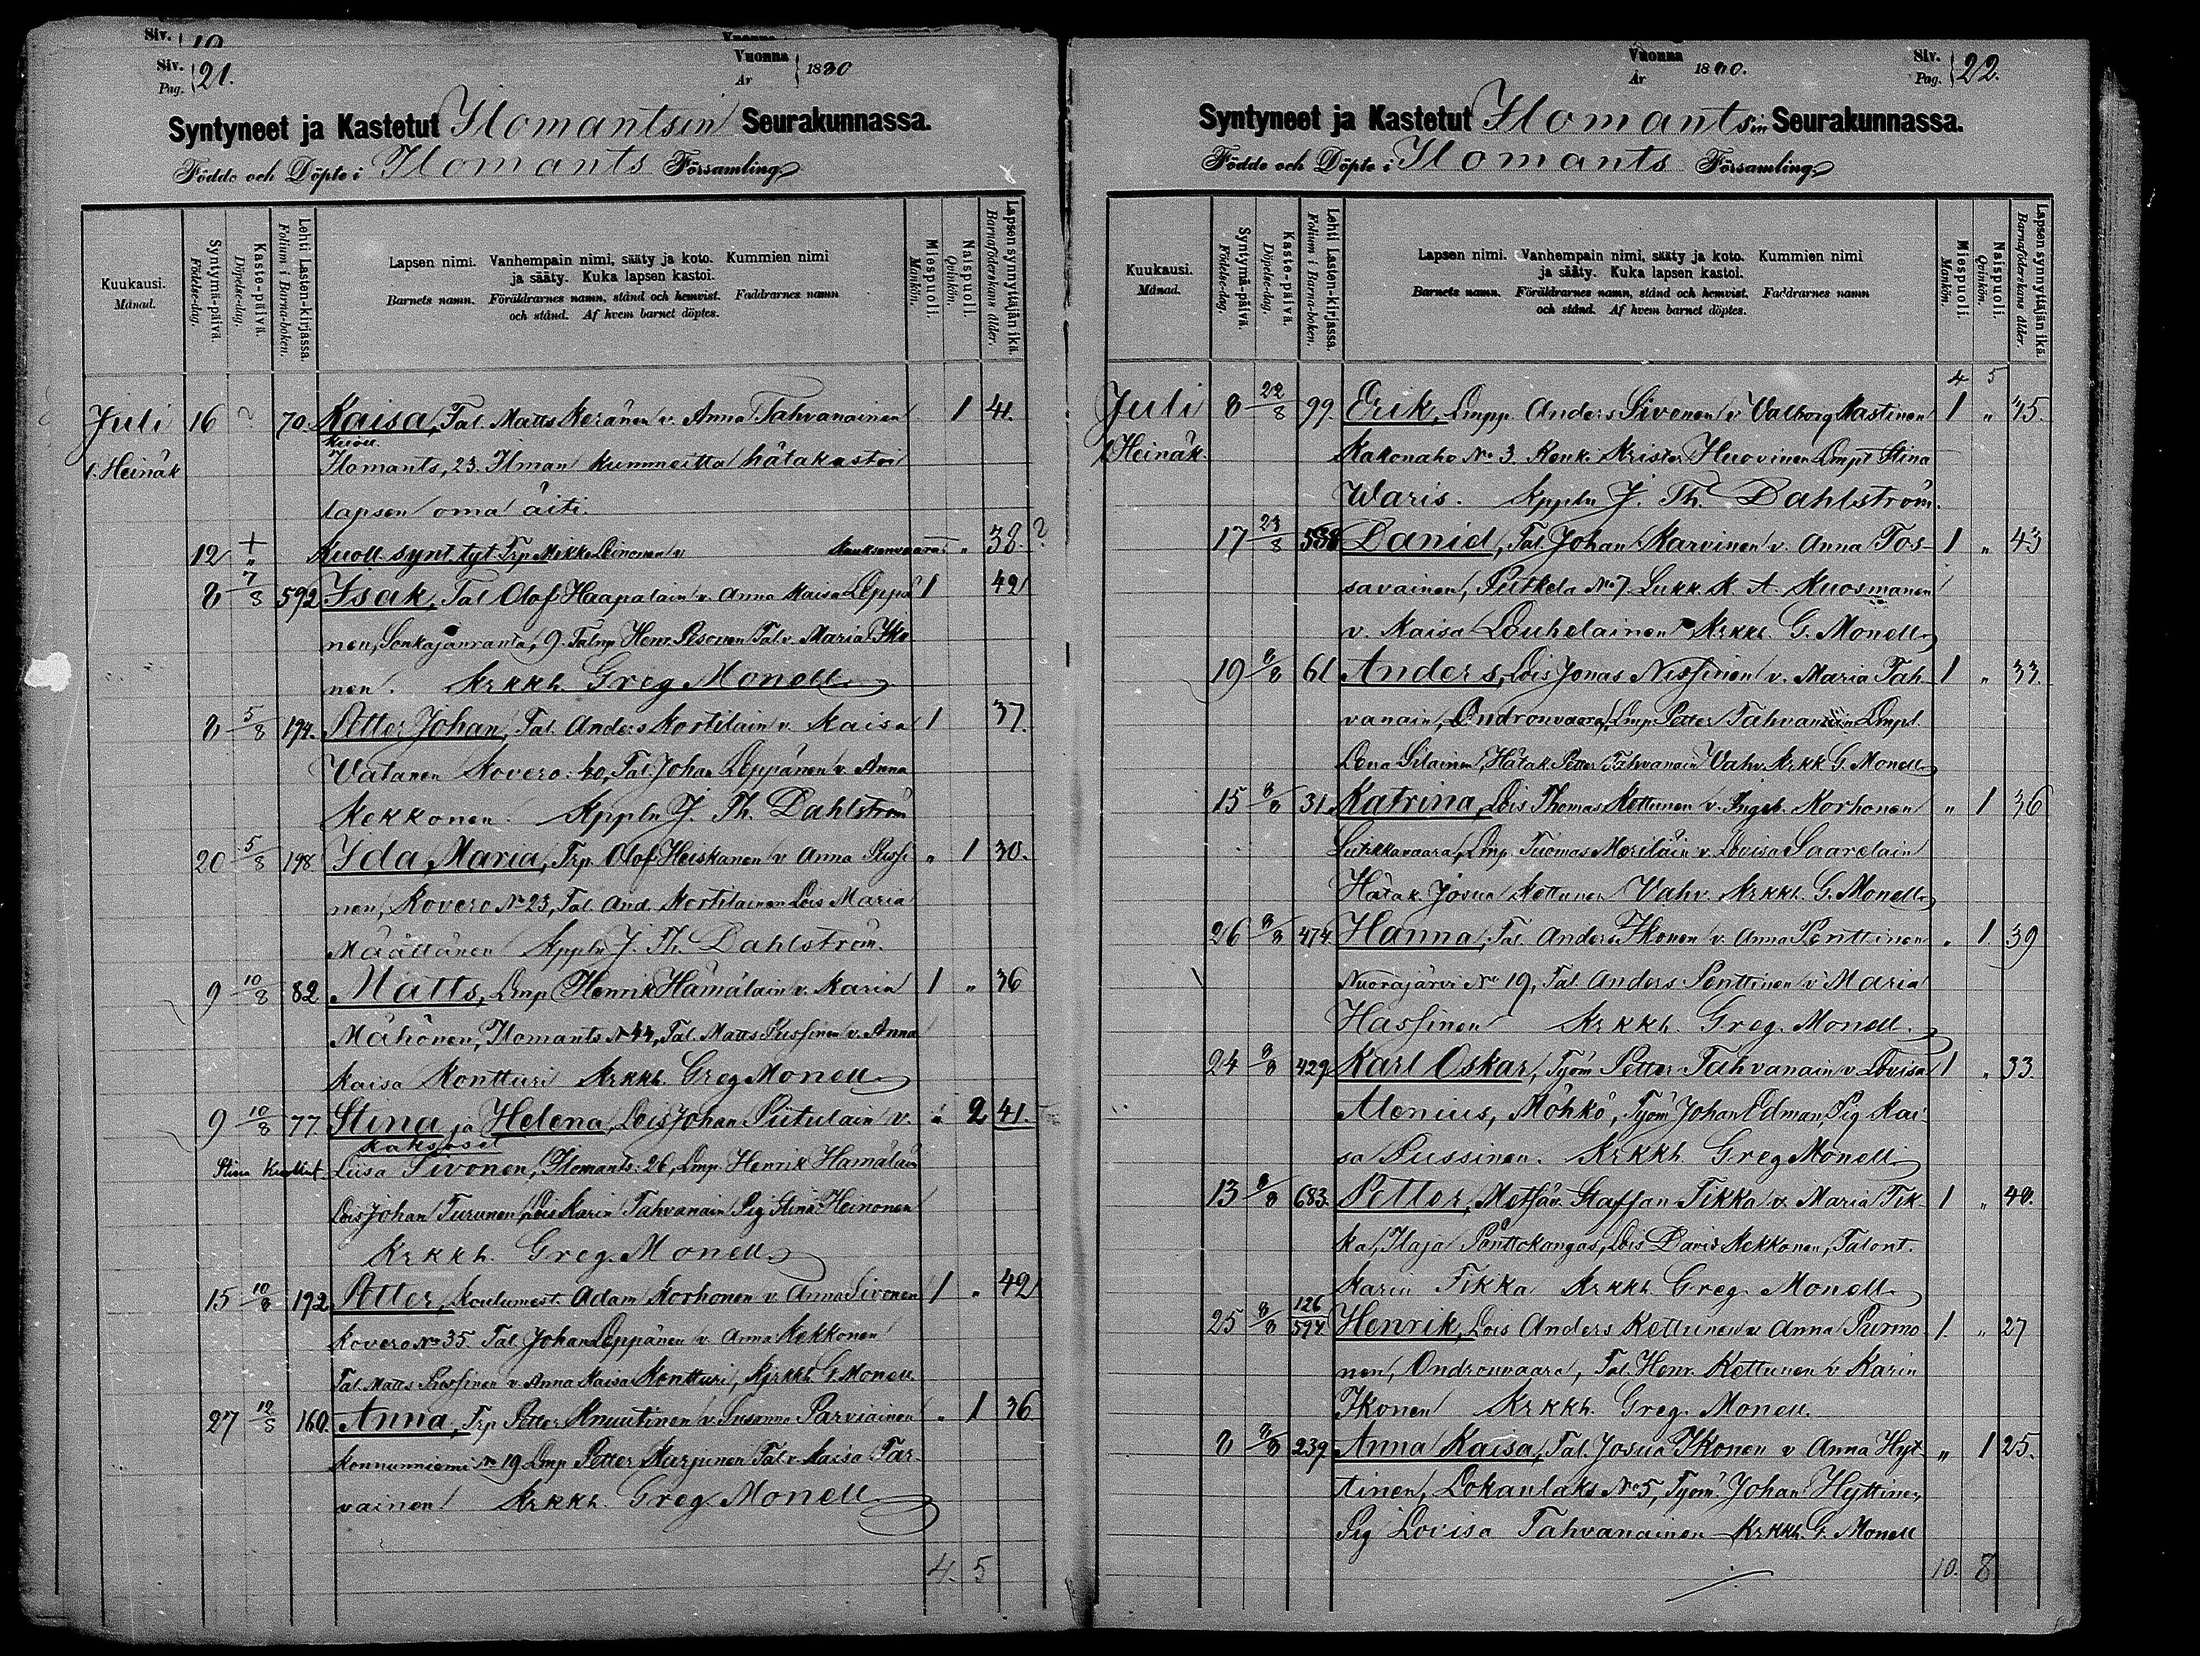 Siv. 19
Vuonna
Siv. Pag. 21.
Vuonna År 1880
Syntyneet ja Kastetut Ilomantsin Seurakunnassa.
Födde och Döpte i Ilomants Församling
Kuukausi. Månad.
Syntymä-päivä. Födelse-dag.
Kaste-päivä. Döpelse-dag.
Lehti Lasten-kirjassa. Folium i Barna-boken.
Lapsen nimi. Vanhempain nimi, sääty ja koto. Kummien nimi
ja sääty. Kuka lapsen kastoi.
Barnets namn. Föräldrarnes namn, stånd och hemvist. Faddrarnes namn
och stånd. Af hvem barnet döptes.
Miespuoli. Mankön.
Naispuoli. Qvinkön.
Lapsen synnyttäjän ikä. Barnaföderskans ålder.
Juli 16 ? 70. Kaisa, Tal. Matts Keränen v. Anna Tahvanainen 1 41.
l. Heinäk Kuoll. Ilomants, 23. Ilman kummeitta hätäkastoi
lapsen oma äiti.
12 + Kuoll. synt. tyt. Trp. Mikko Leinonen v. „ 38. ?
8 7/8 592 Isak, Tal Olof Haapalain v. Anna Kaisa Leppä 1 42
nen, Sonkajanranta, 9. Talnp Henr. Pesonen Tal v. Maria Iko
nen. Krkkh. Greg Monell
8 5/8 194. Petter Johan, Tal. Anders Kortilain v. Kaisa 1 37.
Vatanen Kovero. 40, Tal. Johan Leppänen v. Anna
Kekkonen. Kppln J. Th. Dahlström
20 5/8 198. Ida Maria, Trp. Olof Heiskanen v. Anna Pussi „ 1 30.
nen, Kovero No 23, Tal. And. Kortilainen Lois Maria
Määttänen Kppln J. Th. Dahlström.
9 10/8 82 Matts, Lmp Henrik Hämäläin v. Karin 1 „ 36
Mähönen, Ilomants No 44, Tal. Matts Pussinen v. Anna
Kaisa Kontturi Krkkh. Greg Monell
9 10/8 77. Stina ja Helena, Lois Johan Piitulain v. „ 2 41.
kaksoset
Stina Kuollut. Liisa Sivonen, Ilomants. 26, Lmp. Henrik Hämäläin
Lois Johan Turunen, Lois Karin Tahvanain Pig Stina Heinonen
Krkkh. Greg. Monell
15 10/8 192 Petter, Koulumest. Adam Korhonen v. Anna Sivonen 1 „ 42
Kovero No 35. Tal. Johan Leppänen v. Anna Kekkonen
Tal. Matts Pussinen v. Anna Kaisa Kontturi, Kjrkkh G. Monell
27 12/8 160. Anna, Trp Petter Knuutinen v. Susanna Parviainen „ 1 36
Konnunniemi No 19 Lmp Petter Kurjinen Tal v. Kaisa Tar
vainen Krkkh. Greg Monell
4. 5
Vuonna År 1880.
Siv. Pag. 22.
Syntyneet ja Kastetut Ilomantsin Seurakunnassa.
Födde och Döpte i Ilomants Församling
Kuukausi. Månad.
Syntymä-päivä. Födelse-dag.
Kaste-päivä. Döpelse-dag.
Lehti Lasten-kirjassa. Folium i Barna-boken.
Lapsen nimi. Vanhempain nimi, sääty ja koto. Kummien nimi
ja sääty. Kuka lapsen kastoi.
Barnets namn. Föräldrarnes namn, stånd och hemvist. Faddrarnes namn
och stånd. Af hvem barnet döptes.
Miespuoli. Mankön.
Naispuoli. Qvinkön.
Lapsen synnyttäjän ikä. Barnaföderskans ålder.
4 5
Juli 8 22/8 99 Erik, Lmpp. Anders Sivonen v. Valborg Kastinen 1 „ 45.
l Heinäk. Kakonaho No 3. Renk. Krister Huovinen Lmpt Stina
Waris. Kppln J. Th. Dahlström.
17 23/8 538 Daniel, Tal. Johan Karvinen v. Anna Tos- 1 „ 43
savainen, Putkela No 7. Lukk. K. A. Kuosmanen
v. Kaisa Louhelainen Krkkh. G. Monell
19 8/8 61 Anders, Lois Jonas Nissinen v. Maria Tah 1 „ 33.
vanain, Ondronvaara, Lmp. Petter Tahvanain Lmpt.
Lena Silainen, Hätäk. Petter Tahvanain Vahv. Krkk G. Monell
15 8/8 31. Katrina, Lois Thomas Kettunen v. Ingeb. Korhonen „ 1 36
Liusikkavaara, Lmp. Tuomas Meriläin v. Lovisa Saarelain
Hätäk. Josua Kettunen Vahv. Krkkh. G. Monell
26 8/8 474. Hanna, Tal. Anders Ikonen v. Anna Penttinen „ 1. 39
Nuorajärvi No 19, Tal. Anders Penttinen v. Maria
Hassinen Krkkh. Greg. Monell.
24 8/8 429 Karl Oskar, Työm Petter Tahvanain v. Lovisa 1 „ 33.
Alenius, Möhkö, Työm Johan Edman, Pig Kai
sa Pussinen. Krkkh Greg Monell
13 8/8 683. Petter, Metsäv. Staffan Tikka v. Maria Tik- 1 „ 40.
ka, Ilaja Panttokangas, Lois David Kekkonen, Talont.
Karin Tikka Krkkh. Greg. Monell
25 8/8 126 594. Henrik, Lois Anders Kettunen v. Anna Purmo 1. „ 27
nen, Ondronvaara, Tal. Henr. Kettunen v. Karin
Ikonen Krkkh. Greg. Monell.
8 8/8 239. Anna Kaisa, Tal. Josua Ikonen v. Anna Hyt- „ 1 25.
tinen, Lokanlaks No 5, Työm. Johan Hyttinen,
Pig Lovisa Tahvanainen Krkkh. G. Monell
10. 8